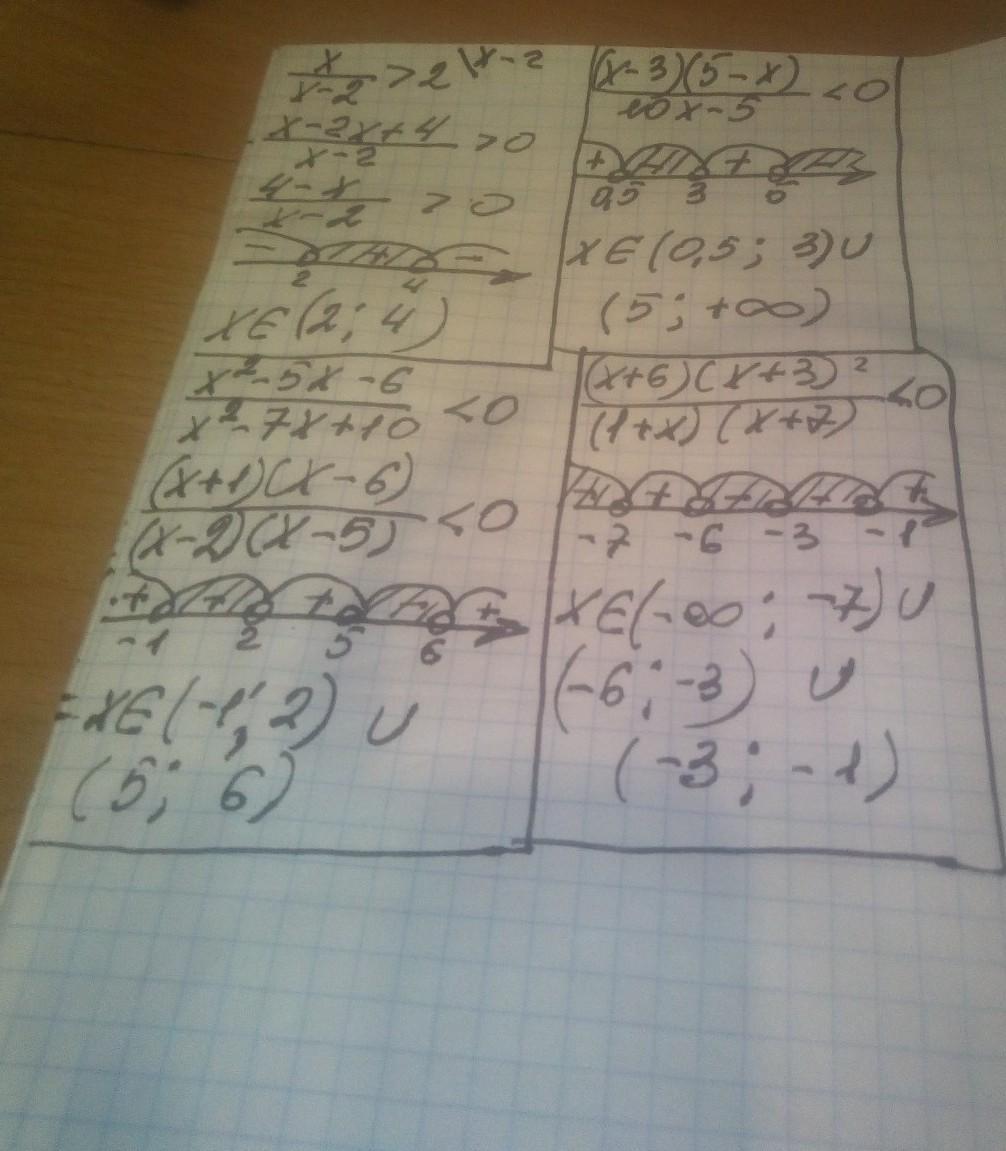 x/(x-2) > 2 \x-2
(x-2x+4)/(x-2) > 0
(4-x)/(x-2) > 0
- + -
2 4
x∈(2; 4)
((x-3)(5-x))/(10x-5) < 0
+ - + -
0,5 3 5
x∈(0,5; 3)∪
(5; +∞)
(x²-5x-6)/(x²-7x+10) < 0
((x+1)(x-6))/((x-2)(x-5)) < 0
+ - + - +
-1 2 5 6
=x∈(-1; 2) ∪
(5; 6)
((x+6)(x+3)²)/((1+x)(x+7)) < 0
- + - - +
-7 -6 -3 -1
x∈(-∞; -7)∪
(-6; -3) ∪
(-3; -1)